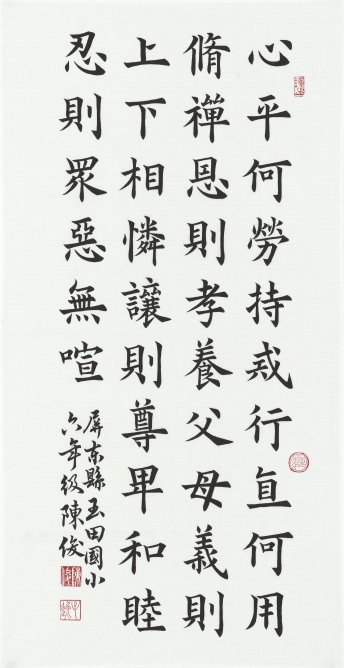 心平何勞持戒行直何用
脩禪恩則孝養父母義則
上下相憐讓則尊卑和睦
忍則眾惡無喧
屏東縣玉田國小
六年級陳俊